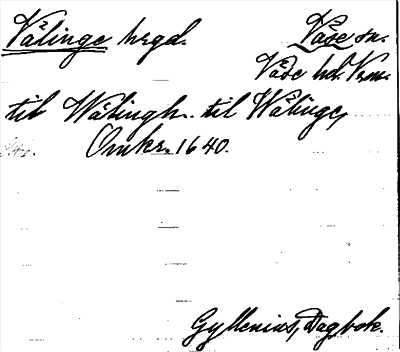 Vålinge hrgd. Väse sn.
Väse hd. Vrml.
til Wålingh. til Wålinge,
Omkr. 1640.
Gyllenius, Dagbok.